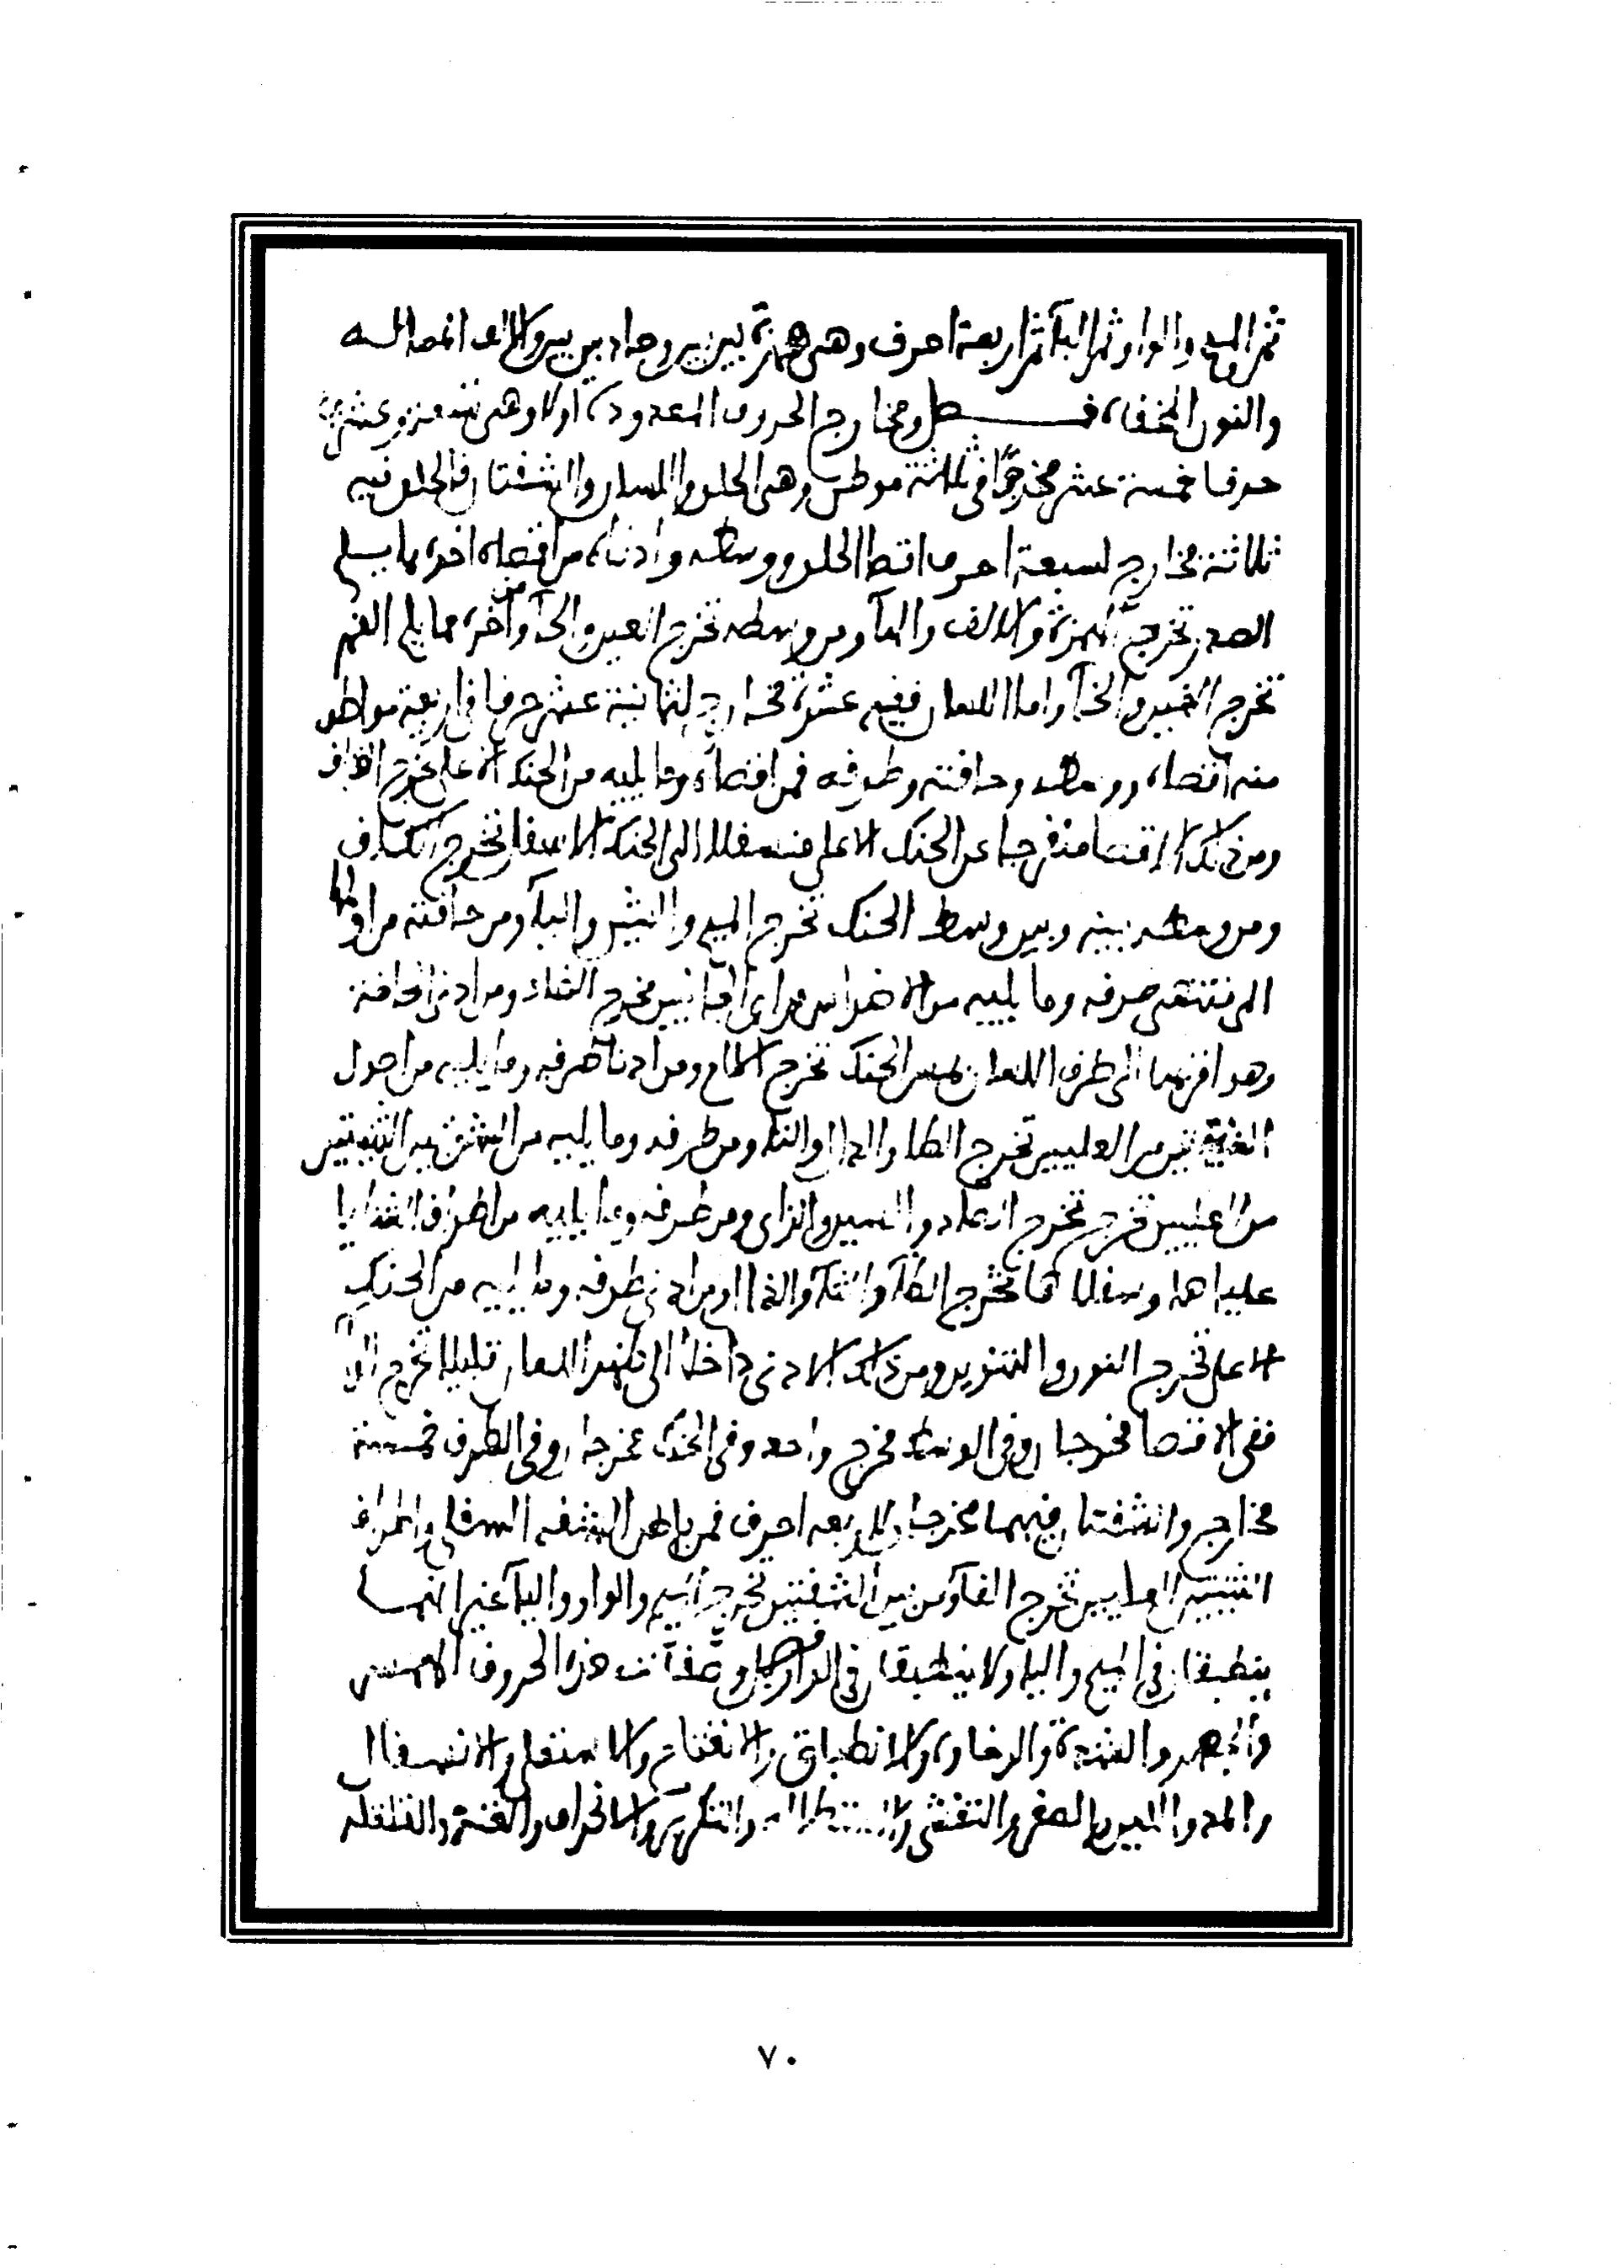 ثم الميم والواو ثم الباء ثم اربعة احرف وهي همزة بين بين وصاد بين بين والالف الممالـه
والنون المخفاة فـــصل ومخارج الحروف المعدودة اولا وهي تسعة وعشرين
حرفا خمسة عشر مخرجًا في ثلاثة مواطن وهي الحلق واللسان والشفتان فالحلق فيه
ثلاثة مخارج لسبعة احرف اقصا الحلق ووسطه وادناه من اقصاه اخره مما يلي
الصدر تخرج الهمزة والالف والهآ ومن وسطه تخرج العين والحآ ومن آخره مما يلي الفم
تخرج الغين والخآ واما اللسان ففيه عشرة مخارج لثمانية عشر حرفا في اربعة مواطن
منه اقصاه ووسطه وحافته وطرفه فمن اقصاه وما يليه من الحنك الاعلى تخرج القاف
ومن ذلك الاقصا منفرجا عن الحنك الاعلى متسفلا الى الحنك الاسفل تخرج الكاف
ومن وسطه بينه وبين وسط الحنك تخرج الجيم والشين واليآ ومن حافته من اولها
الى منتهى طرفه وما يليه من الاضراس من اي الجانبين تخرج الضاد ومن ادنى الحافة
وهو اقربها الى طرف اللسان من الحنك تخرج اللام ومن ادنا طرفه وما يليه من اصول
الثنيتين من العليين تخرج الطا والدال والتآ ومن طرفه وما يليه من الشق بين الثنيتين
من العليين تخرج تخرج الصاد والسين والزاي ومن طرفه وما يليه من اطراف الثنايا
علياها وسفلاها تخرج الظآ والثآ والذال ومن ادنى طرفه وما يليه من الحنك
الاعلى تخرج النون والتنوين ومن ذلك الادنى داخلا الى ظهر اللسان قليلا تخرج الرآ
ففي الاقصا مخرجان وفي الوسط مخرج واحد وفي الحنك مخرجان وفي الطرف خمسة
مخارج والشفتان فيهما مخرجان لاربعه احرف فمن باطن الشفه السفلى واطراف
الثنيتين العليين تخرج الفآ ومن بين الشفتين تخرج الميم والواو والبآ غير انهما
ينطبقان في الميم والبا ولا ينطبقان في الواو فصل وصفات هذه الحروف الهمس
والجهر والشدة والرخاوة والانطباق والانفتاح والاستعلى والانسفال
والمد واللين والصفير والتفشي والاستطاله والتكرير والانحراف والغنة والقلقله
٧٠